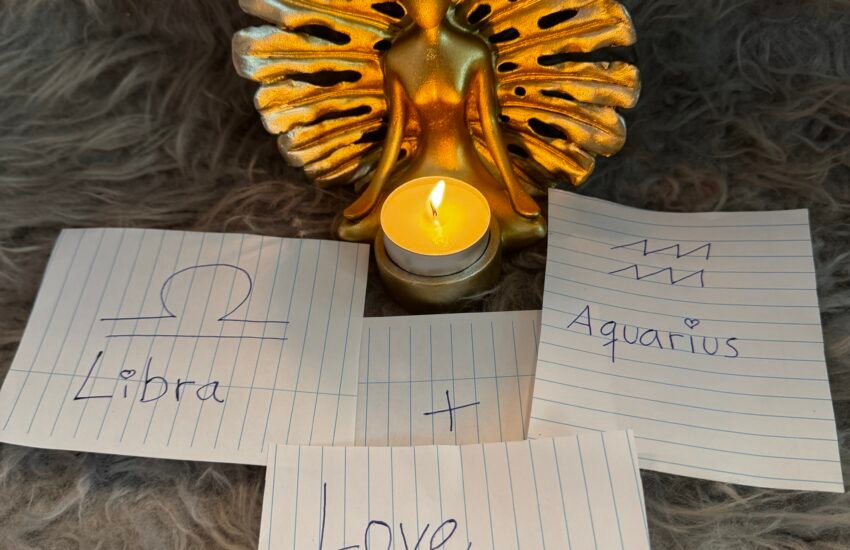 Libra
+
Aquarius
Love